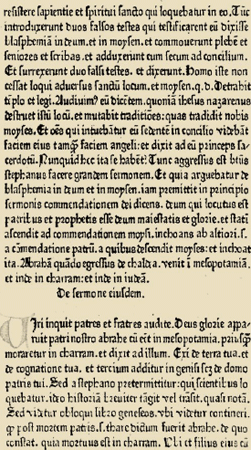 resistere sapientie et spiritui sancto qui loquebatur in eo. Tūc
introduxerunt duos falsos testes qui testificarent̄ eū dixisse
blasphemiā in deum. et in moysen. et commouerunt plebē et
seniozes et scribas. et adduxerunt eum secum ad concilium.
Et surrexerunt duo falsi testes. et dixerunt. Homo iste non
cessat loqui aduersus sanctū locum. et moysen. q. d. Detrahit
tēplo et legi. Audiuim⁹ eū dicētem. quoniā ihesus nazarenus
destruet istū locū. et mutabit traditiōes. quas tradidit nobis
moyses. Et oēs qui intuebātur eū sedentē in concilio videbāt
faciem eius tamq̄ faciem angeli: et dixit ad eū princeps sa-
cerdotū. Nunquid hec ita se habēt? Tunc aggressus est btūs
stephanus facere grandem sermonem. Et quia arguebatur de
blasphemia in deum et in moysen. iam premittit in principio
sermonis commendationem dei dicens. deum qui locutus est
patribus et prophetis esse deum maiestatis et glorie. et statī
ascendit ad commendationem moysi. inchoans ab altiori. s.
a cōmendatione patrū. a quibus descendit moyses: et inchoat
ita. Abrahā quādo egressus de chaldea. venit ī mesopotamiā.
et inde in charram: et inde in iudeā.
De sermone eiusdem.
Uiri inquit patres et fratres audite. Deus glorie appa-
ruit patri nostro abrahe cū eēt in mesopotamia. priusq̄
moraretur in charram. et dixit ad illum. Exi de terra tua. et
de cognatione tua. et tercium additur in genesi scz de domo
patris tui. Sed a stephano pretermittitur: qui scientibus lo
quebatur. ideo historiā breuiter tāgit vel trāsit. quasi notā.
Sed videtur obloqui libro geneseos. vbi videtur contineri.
q̄ post mortem patris. s. thare dictum fuerit abrahe. de quo
constat. quia mortuus est in charram. Ubi et filius eius cū